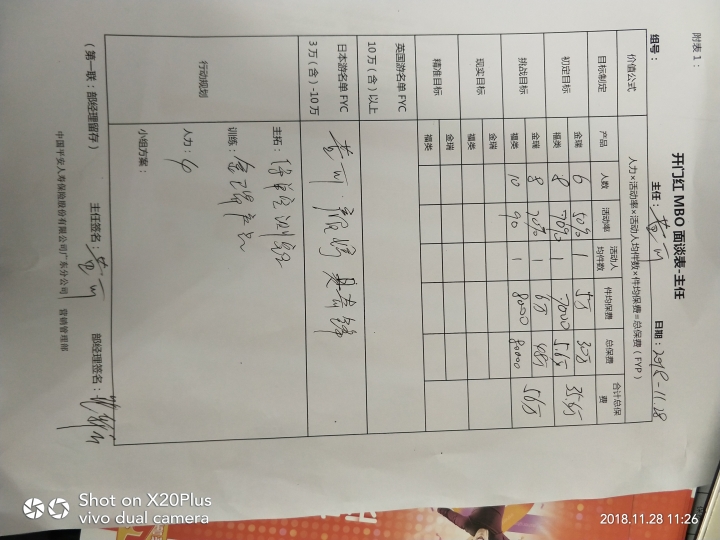 附表 1：
开门红 MBO 面谈表-主任
组号： 主任： 日期：2018-11.28
价值公式 人力×活动率×活动人均件数×件均保费=总保费（FYP）
目标制定 产品 人数 活动率 活动人均件数 件均保费 总保费 合计总保费
初定目标 金瑞 6 50% 1 5万 30万 35.6万
福类 8 70% 1 7000 5.6万
挑战目标 金瑞 8 70% 1 6万 48万 56万
福类 10 90 1 8000 80000
现实目标 金瑞
福类
精准目标 金瑞
福类
英国游名单 FYC
10 万（含）以上
日本游名单 FYC
3 万（含）-10 万
行动规划
主拓：
训练：金瑞产品
人力：4
小组方案：
主任签名： 部经理签名：
（第一联：部经理留存）
中国平安人寿保险股份有限公司广东分公司 营销管理部
Shot on X20Plus
vivo dual camera
2018.11.28 11:26